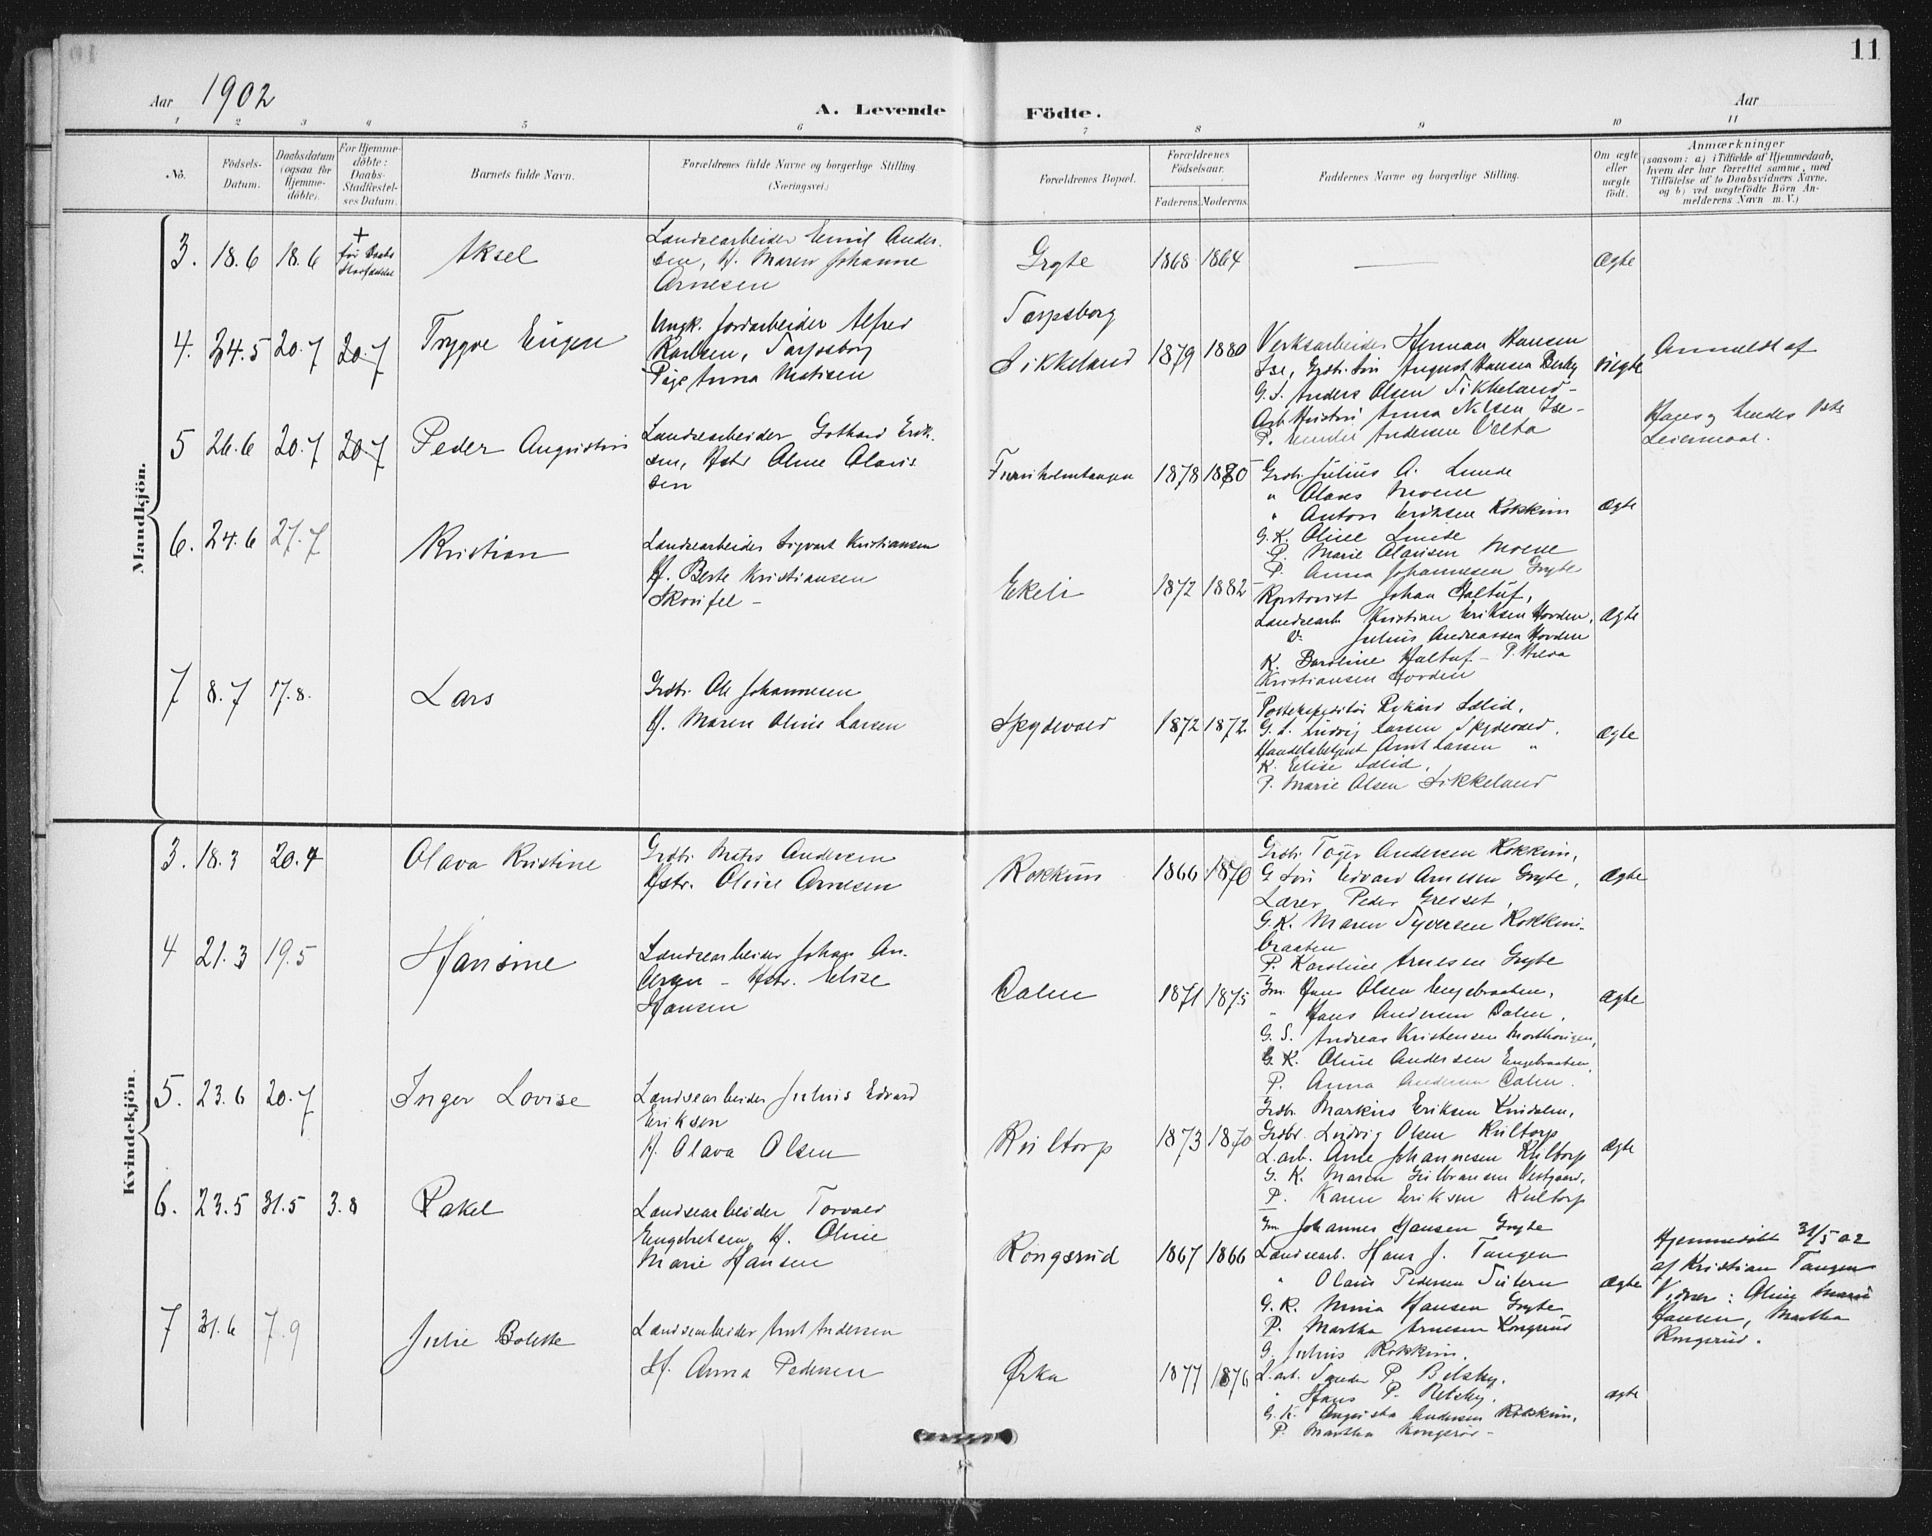 11
Aar 1902
A. Levende Födte.
Aar
1 2 3 4 5 6 7 8 9 10 11
No.
Födsels-Datum.
Daabsdatum (ogsaa for Hjemme-döbte).
For Hjemme-döbte: Daabs-Stadfæstel-ses Datum.
Barnets fulde Navn.
Forældrenes fulde Navne og borgerlige Stilling (Næringsvei.)
Forældrenes Bopæl.
Forældrenes Födselsaar.
Faderens. Moderens.
Faddernes Navne og borgerlige Stilling.
Om ægte eller uægte födt.
Anmærkninger
(saasom: a) i Tilfælde af Hjemmedaab, hvem der har forrettet samme, med Tilföielse af to Daabsvidners Navne, og b) ved uægtefödte Börn Anmelderens Navn m. V.)
Mandkjön.
3. 18.6 18.6
Aksel
Landsearbeider Emil Ander-
sen, H. Maren Johanne
Arnesen
Gryte 1868 1864 — Ægte
4. 24.5 20.7 20.7
Trygve Eugen
Ungk. Jordarbeider Alfred
Karlsen, Sarpsborg
Pige Anna Matisen
Sarpsborg
Sikkeland 1879 1880
Verksarbeider Herman Hansen
Ise, August Hansen Berby
G. S. Anders Olsen Sikkeland -
Anna Nilsen Ise -
P. Andersen Velta
Uægte
Anmeldt af
Hans og hendes 1ste
Leiermaal.
5 26.6 20.7 20.7
Peder Augustin
Landsearbeider Gothard Erik-
sen, Hstr Oline Olaus
sen
Furuholmtangen 1878 1880
Grdbr Julius A. Lunde
" Olaus Moene
" Anton Eriksen Kokkim
G. K. Oline Lunde
P. Marie Olausen Moene
P. Anna Johannesen Gryte
Ægte
6. 24.6 27.7
Kristian
Landsearbeider Sigvart Kristiansen
H. Berte Kristiansen
Skovfel -
Ekeli 1872 1882
Johan Haltuf,
Landsearb. Kristian Eriksen Hovden,
Julius Andreassen Hovden
K. Haltuf - P. Hilda
Kristiansen Hovden
Ægte
7 8.7 17.8.
Lars
Grdbr. Ole Johannesen
H. Maren Oline Larsen
Spydevold 1872 1872.
Postexpeditör Rikard Lslid,
G. S. Ludvig Larsen Spydevold,
Handelsbetjent Arnt Larsen "
K. Elise Lslid,
P. Marie Olsen Sikkeland
Ægte
Kvindekjön.
3. 18.3 20.4
Olava Kristine
Grdbr. Mats Andersen
Hstr. Oline Arnesen
Kokkim 1866 1870
Grdbr. Töger Andersen Kokkim,
G Sön Edvard Arnesen Gryte,
Lærer Peder Gresset,
G. K. Maren Syversen Kokkim-
braaten
P. Karoline Arnesen Gryte
Ægte
4 21.3 19.5
Hansine
Landsearbeider Johan An-
dersen - Hstr. Elise
Hansen
Dalen 1871 1875
Gm Hans Olsen Engebraaten,
" Hans Andersen Dalen,
G. S. Andreas Kristensen
G. K. Oline Andersen Engebraaten,
P. Anna Andersen Dalen.
Ægte
5. 23.6 20.7
Inger Lovise
Landsearbeider Julius Edvard
Eriksen
H. Olava Olsen
Kiltorp 1873 1870
Grdbr. Markus Eriksen
Grdbr. Ludvig Olsen Kiltorp
L.arb. Arne Johannesen Kiltorp
G. K. Maren Gulbransen Vestgaard,
P. Karen Eriksen Kiltorp
Ægte
6. 23.5 31.5 3.8
Rakel
Landsearbeider Torvald
Engebretsen, H. Oline
Marie Hansen
Kongsrud 1867 1866
Gm Johannes Hansen Gryte
Landsearb. Hans J. Tangen
" Olaus Pedersen
G. K. Minia Hansen Gryte
P. Martha Arnesen Kongsrud
Ægte
Hjemmedöbt 31/5 02
af Kristian Tangen
Vidner: Oline Marie
Hansen, Martha
Kongsrud.
7 31.6 7.9
Julie Bolette
Landsearbeider Arnt Andersen
H. Anna Pedersen
Örka 1877 1876
G. Julius Kokkim.
L.arb. Sander P. Bilsby.
" Hans P. Bilsby,
G. K. Augusta Andersen Kokkim,
P. Martha
Ægte